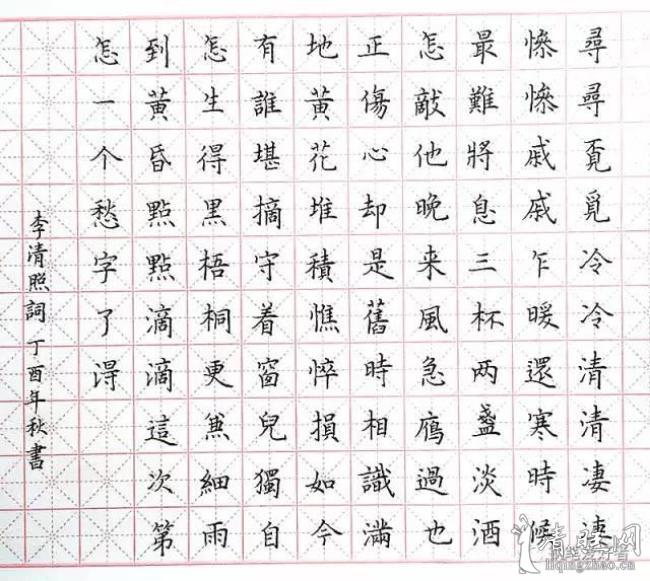 尋尋覔覓冷冷清清凄凄
慘慘戚戚乍暖還寒時候
最難將息三杯两盞淡酒
怎敵他晚来風急鴈過也
正傷心却是舊時相識滿
地黄花堆積憔悴損如今
有誰堪摘守着窗兒獨自
怎生得黑梧桐更兼細雨
到黄昏點點滴滴這次第
怎一个愁字了得
李清照詞 丁酉年秋書